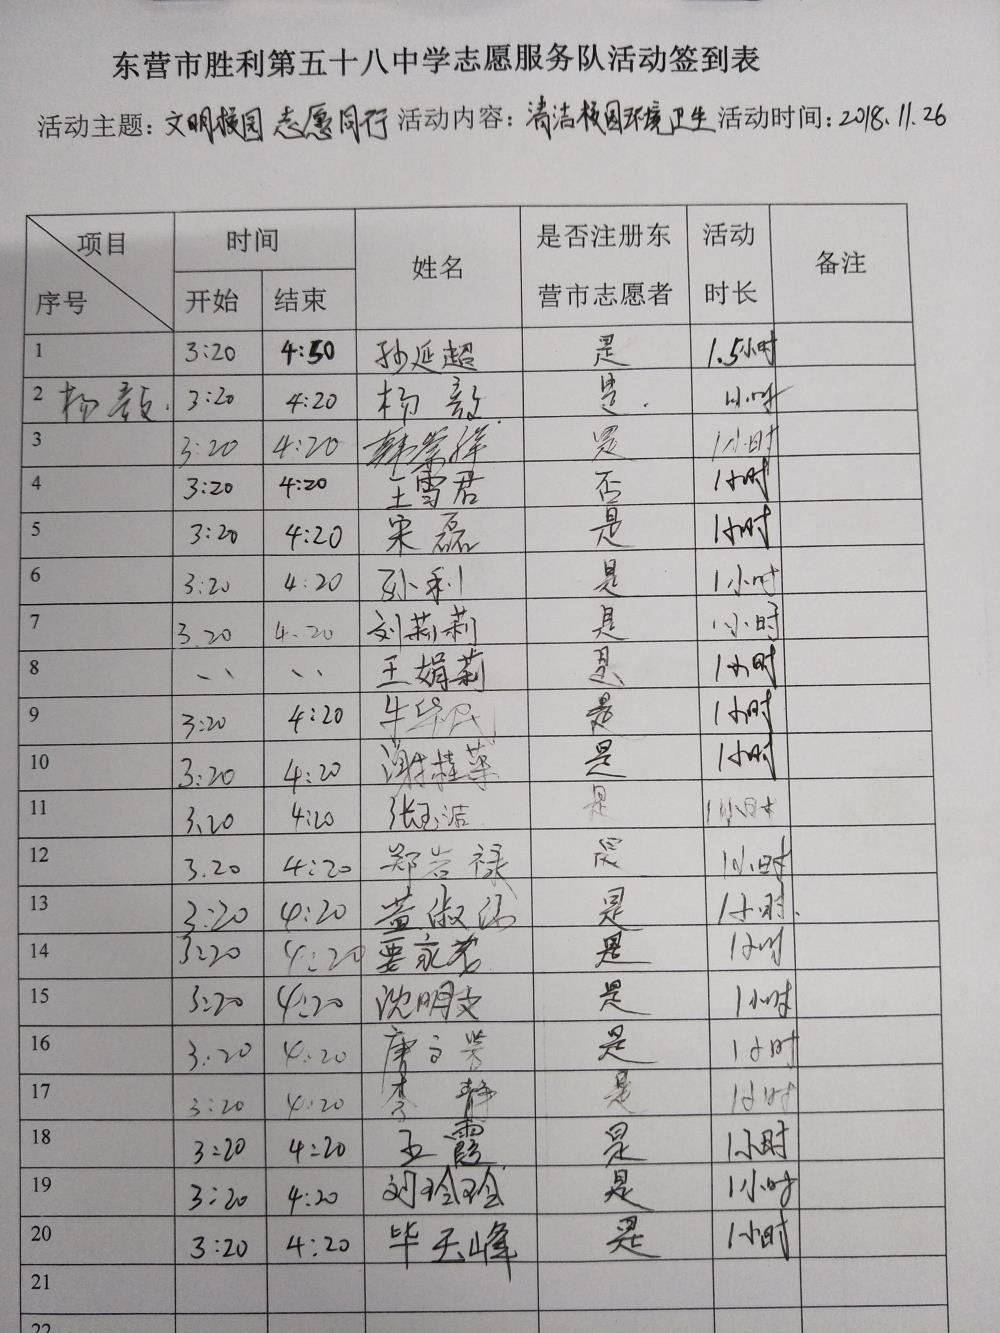 东营市胜利第五十八中学志愿服务队活动签到表
活动主题：文明校园 志愿同行 活动内容：清洁校园环境卫生 活动时间：2018.11.26
项目 时间 姓名 是否注册东 活动 备注
序号 开始 结束 营市志愿者 时长
1 3:20 4:50 孙延超 是 1.5小时
2 杨毅. 3:20 4:20 杨毅 是. 1小时
3 3:20 4:20 韩崇祥 是 1小时
4 3:20 4:20 王雪君 否 1小时
5 3:20 4:20 宋磊 是 1小时
6 3:20 4:20 孙利 是 1小时
7 3.20 4.20 刘莉莉 是 1小时
8 、、 、、 王娟莉 是 1小时
9 3:20 4:20 牛华民 是 1小时
10 3:20 4:20 谢桂英 是 1小时
11 3.20 4:20 张玉洁 是 1小时
12 3.20 4:20 郑岩禄 是 1小时
13 3:20 4:20 董淑 是 1小时.
14 3:20 4:20 要永 是 1小时
15 3:20 4:20 沈明文 是 1小时
16 3:20 4:20 唐 是 1小时
17 3:20 4:20 李静 是 1小时
18 3:20 4:20 王霞 是 1小时
19 3:20 4:20 刘玲玲 是 1小时
20 3:20 4:20 毕天峰 是 1小时
21
22